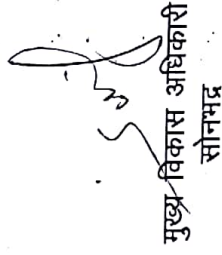 मुख्य विकास अधिकारी
सोनभद्र